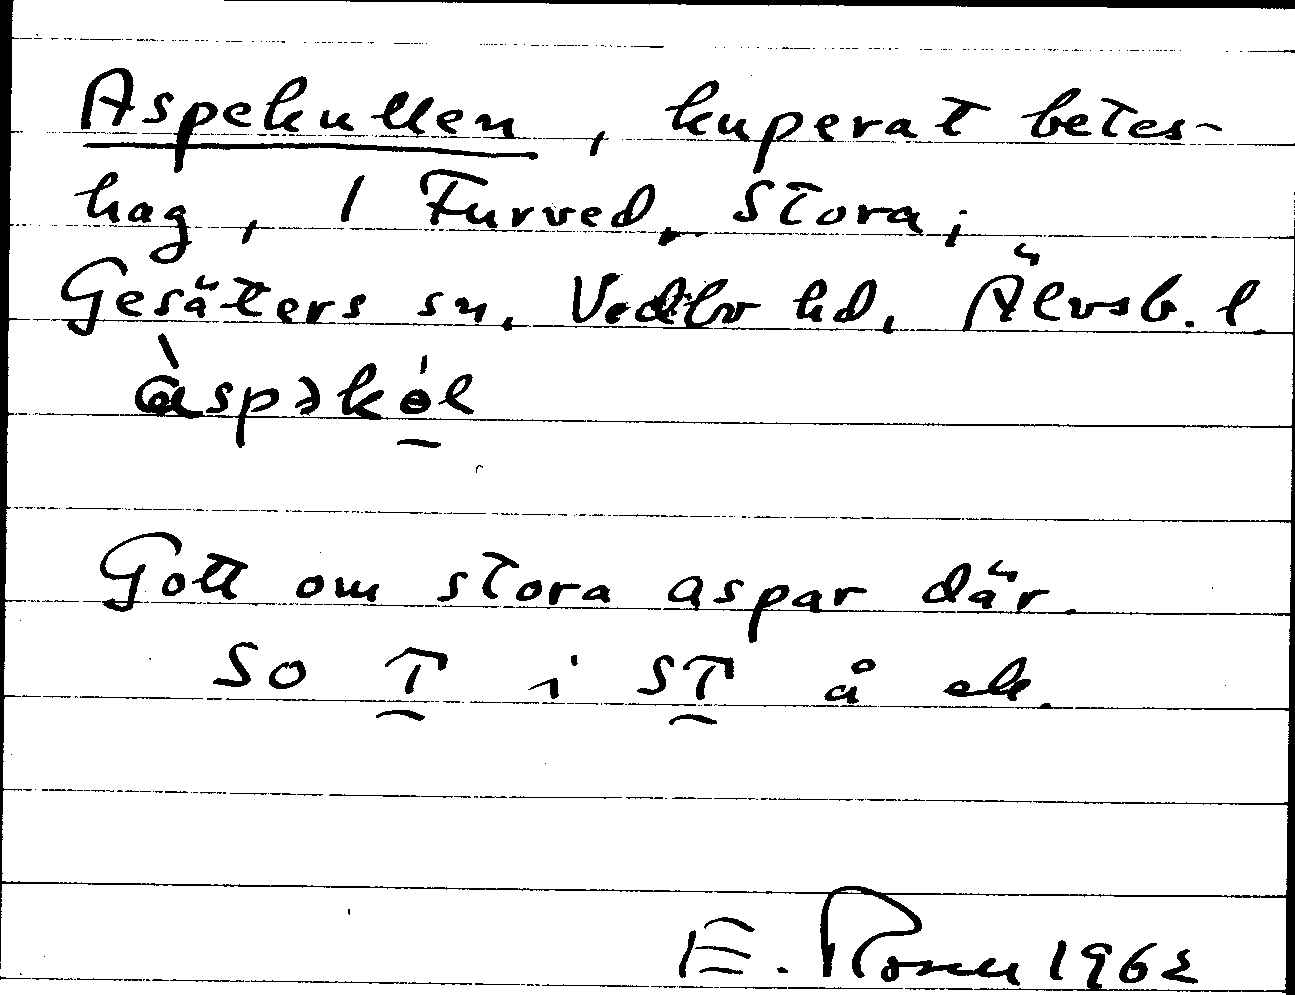 Aspekullen, kuperat betes-
hag, 1 Furved, Stora;
Gesäters sn. Vedbo hd, Älvsb. l.
àspəkɵ́l
Gott om stora aspar där.
SO T i ST å ek.
E. Rosen 1962